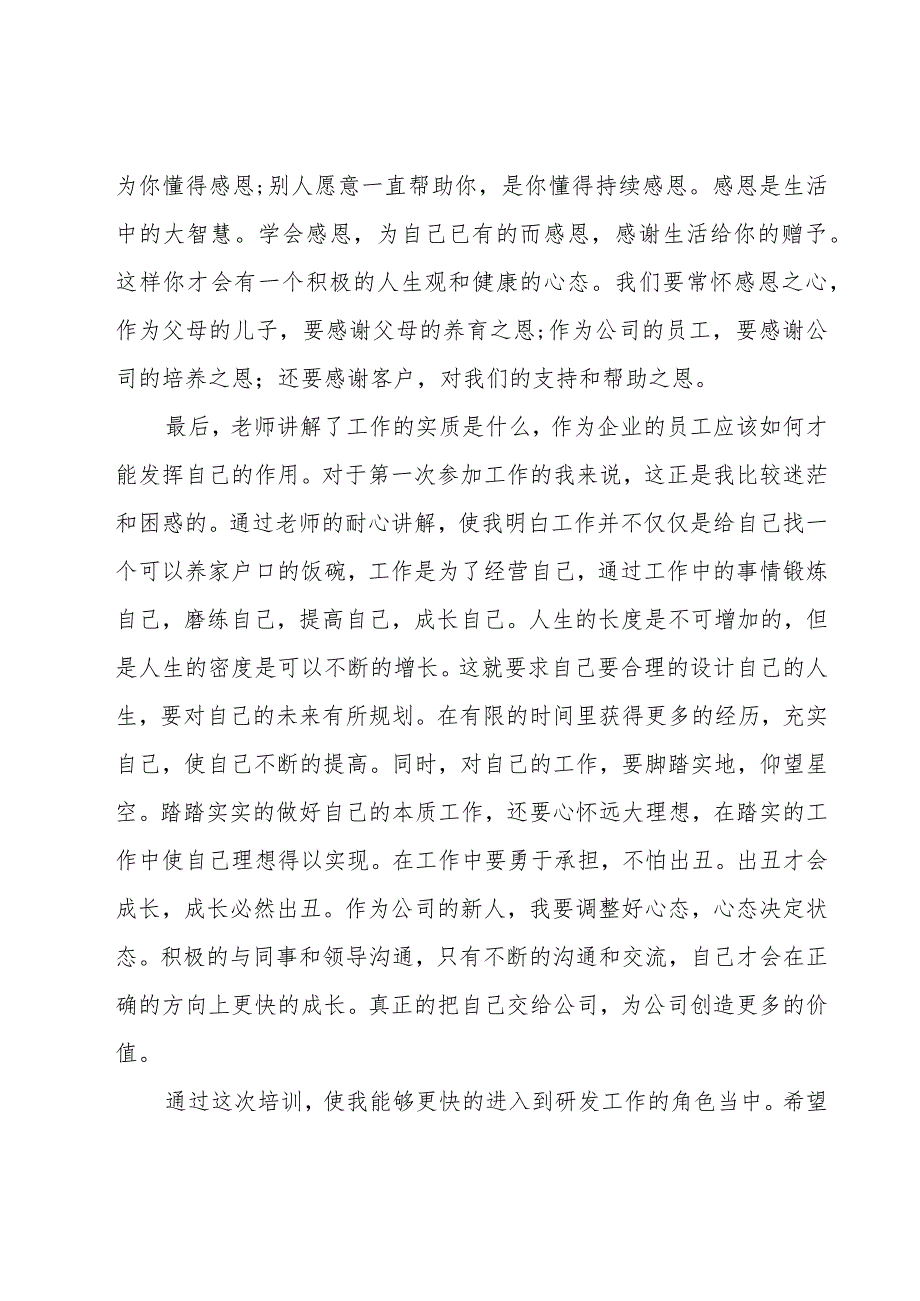 为你懂得感恩;别人愿意一直帮助你，是你懂得持续感恩。感恩是生活
中的大智慧。学会感恩，为自己已有的而感恩，感谢生活给你的赠予。
这样你才会有一个积极的人生观和健康的心态。我们要常怀感恩之心，
作为父母的儿子，要感谢父母的养育之恩;作为公司的员工，要感谢公
司的培养之恩；还要感谢客户，对我们的支持和帮助之恩。
最后，老师讲解了工作的实质是什么，作为企业的员工应该如何才
能发挥自己的作用。对于第一次参加工作的我来说，这正是我比较迷茫
和困惑的。通过老师的耐心讲解，使我明白工作并不仅仅是给自己找一
个可以养家户口的饭碗，工作是为了经营自己，通过工作中的事情锻炼
自己，磨练自己，提高自己，成长自己。人生的长度是不可增加的，但
是人生的密度是可以不断的增长。这就要求自己要合理的设计自己的人
生，要对自己的未来有所规划。在有限的时间里获得更多的经历，充实
自己，使自己不断的提高。同时，对自己的工作，要脚踏实地，仰望星
空。踏踏实实的做好自己的本质工作，还要心怀远大理想，在踏实的工
作中使自己理想得以实现。在工作中要勇于承担，不怕出丑。出丑才会
成长，成长必然出丑。作为公司的新人，我要调整好心态，心态决定状
态。积极的与同事和领导沟通，只有不断的沟通和交流，自己才会在正
确的方向上更快的成长。真正的把自己交给公司，为公司创造更多的价
值。
通过这次培训，使我能够更快的进入到研发工作的角色当中。希望